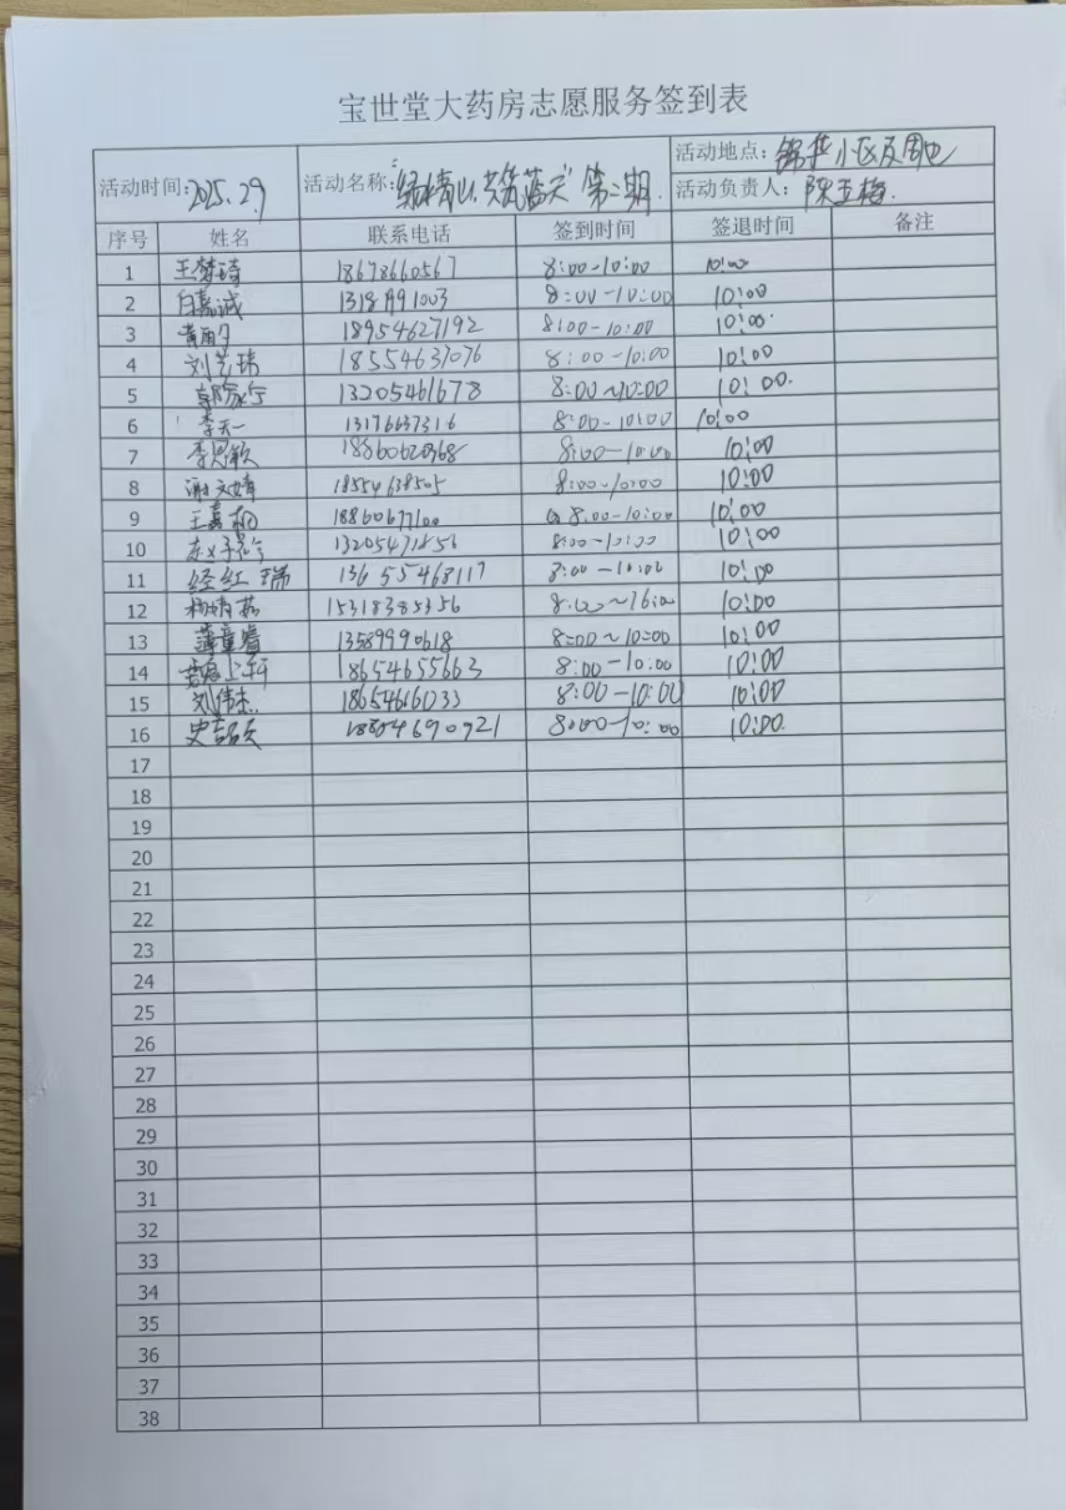 宝世堂大药房志愿服务签到表
活动时间:2025.2.9 活动名称: 第二期 活动地点:锦华小区及周边
活动负责人:陈玉梅
序号 姓名 联系电话 签到时间 签退时间 备注
1 王梦琦 18678660567 8:00-10:00 10:00
2 白嘉诚 1318 1003 8:00-10:00 10:00
3 18954627192 8:00-10:00 10:00
4 刘艺玮 18554637076 8:00-10:00 10:00
5 郭家宁 13205461678 8:00~10:00 10:00.
6 李天一 13176637316 8:00-10:00 10:00
7 李思颖 8:00-10:00 10:00
8 谢文婧 18554638505 8:00-10:00 10:00
9 王嘉桐 18860677100 8:00-10:00 10:00
10 8:00-10:00 10:00
11 经红瑞 13655468117 8:00-10:00 10:00
12 杨婧茹 15318385356 10:00
13 薄童睿 13589990618 8:00~10:00 10:00
14 18654655663 8:00-10:00 10:00
15 刘伟杰 8:00-10:00 10:00
16 8:00-10:00 10:00.
17
18
19
20
21
22
23
24
25
26
27
28
29
30
31
32
33
34
35
36
37
38